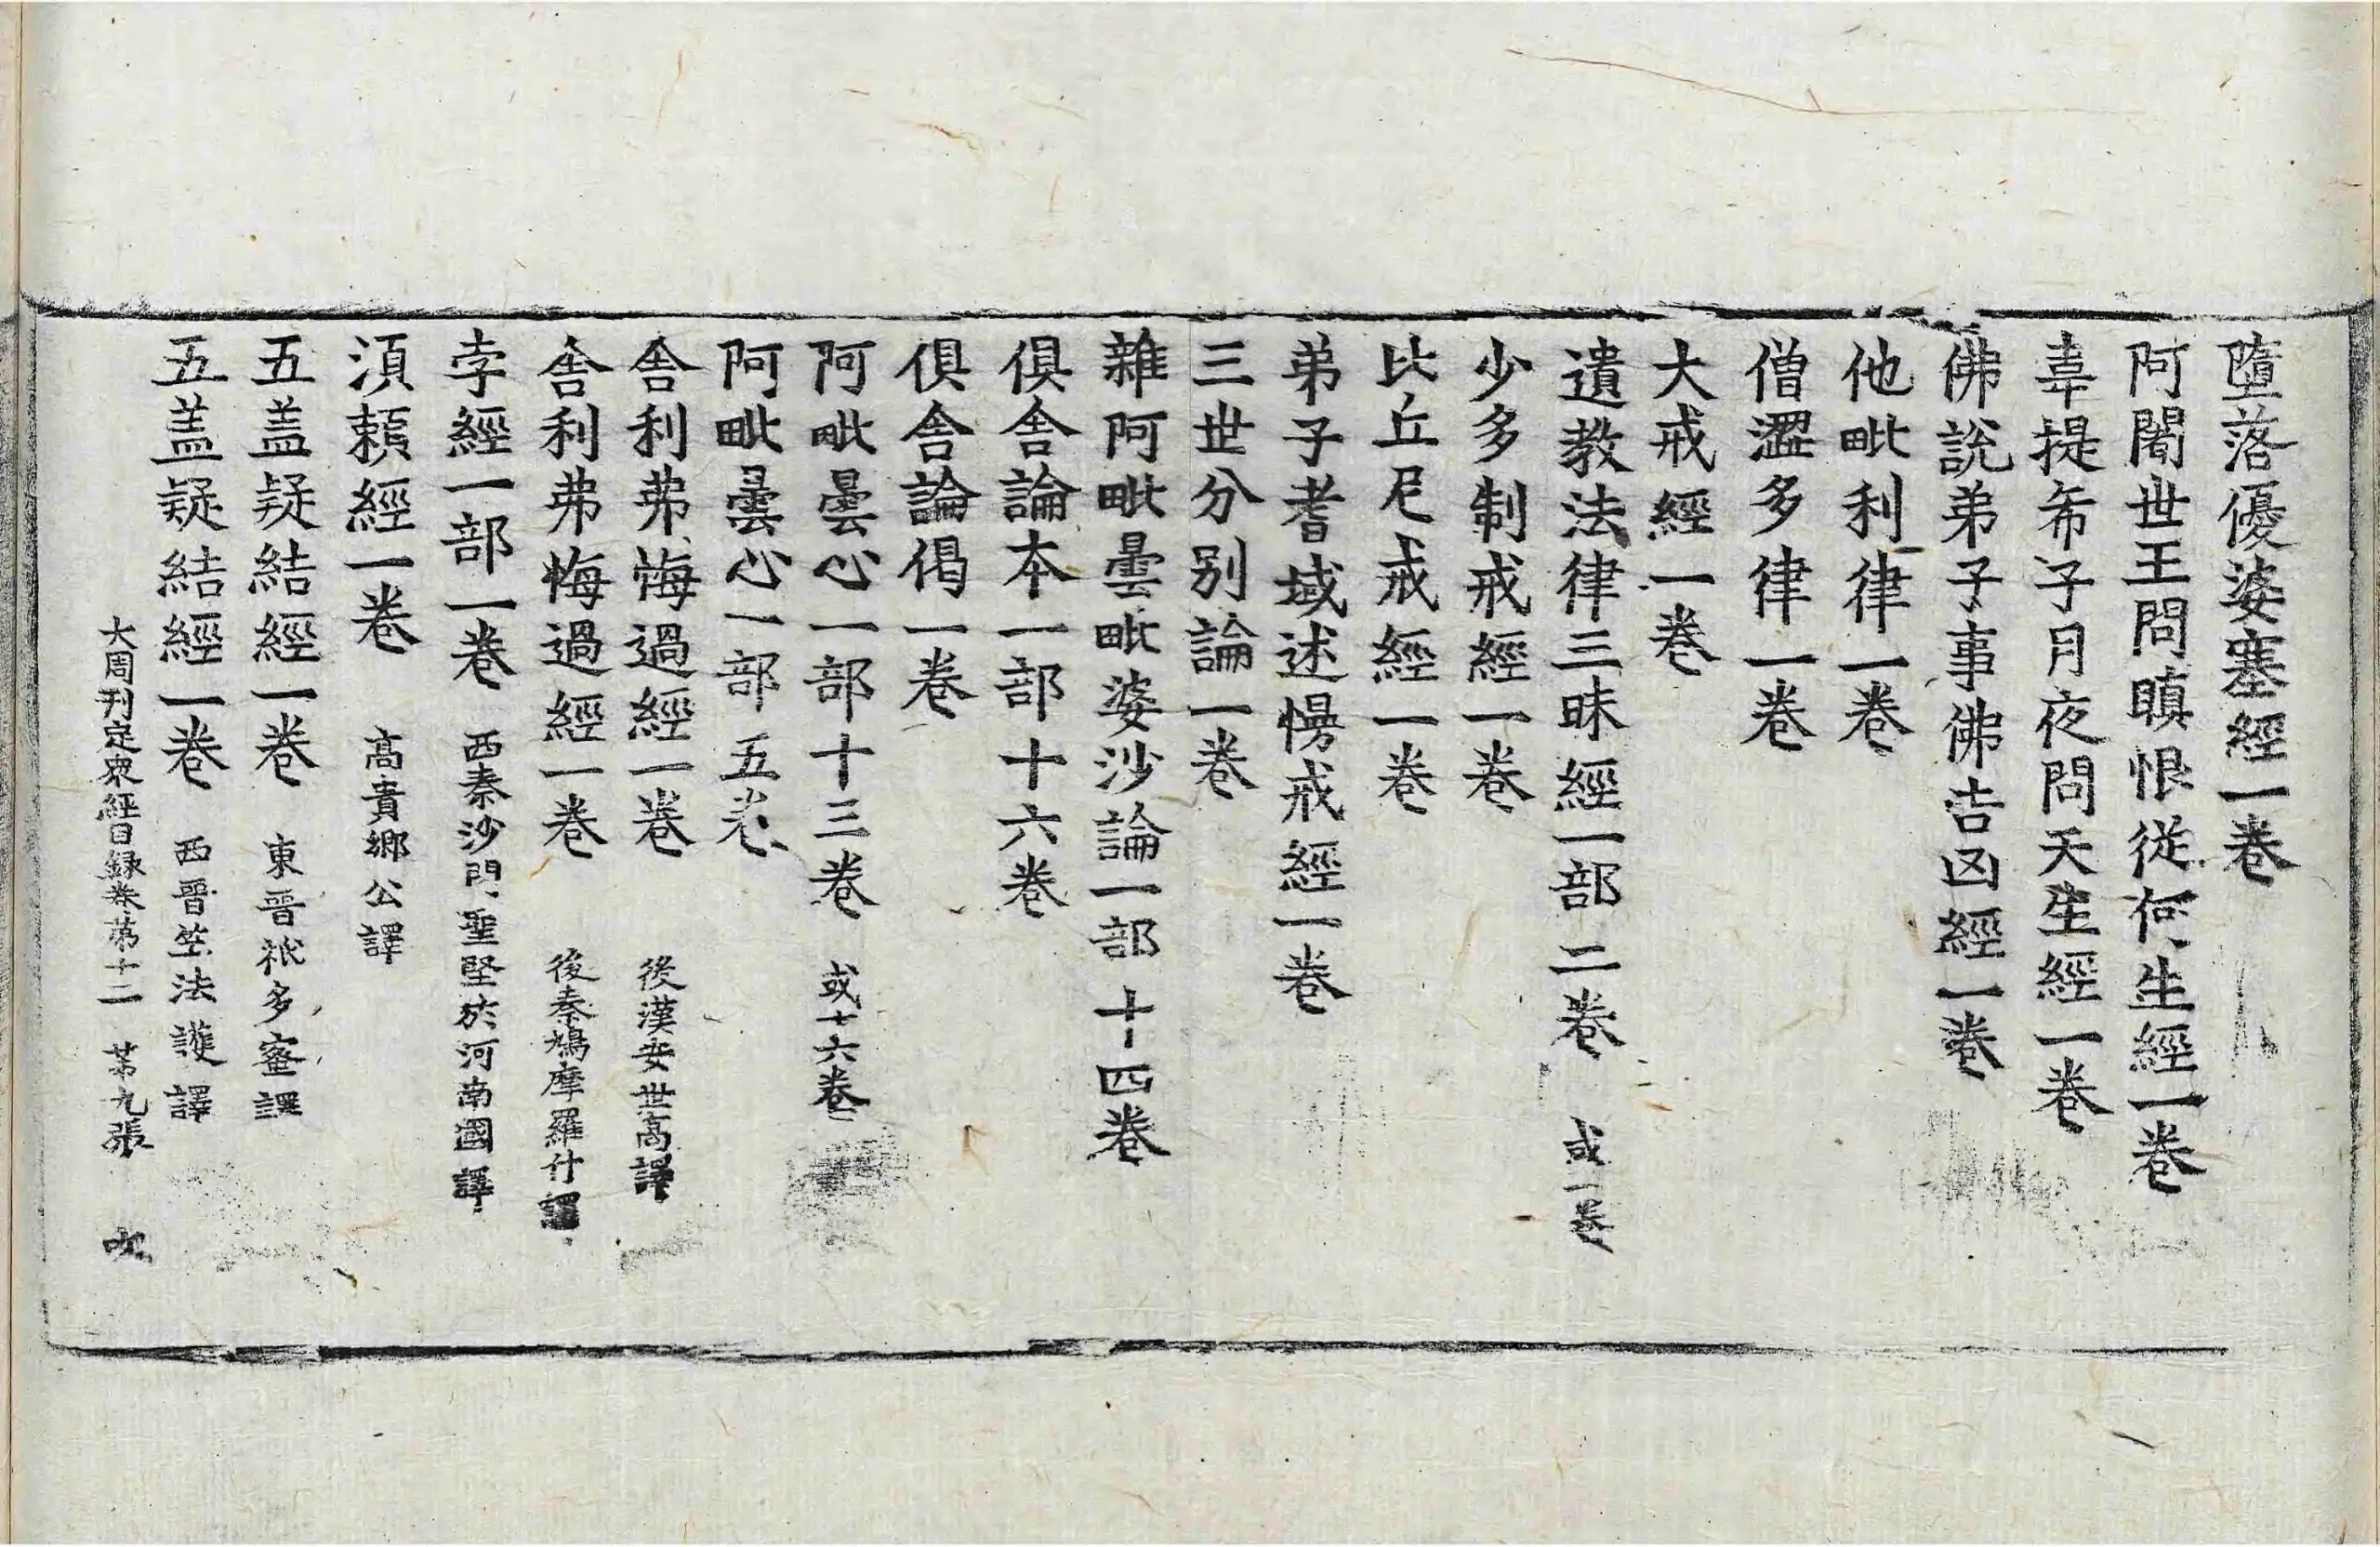 墮落優婆塞經一卷
阿闍世王問瞋恨從何生經一卷
韋提希子月夜問天生經一卷
佛説弟子事佛吉凶經一卷
他毗利律一卷
僧澀多律一卷
大戒經一卷
遺教法律三昧經一部二卷 或一卷
少多制戒經一卷
比丘尼戒經一卷
弟子耆域述慢戒經一卷
三世分别論一卷
雜阿毗曇毗婆沙論一部十四卷
俱舍論本一部十六卷
俱舍論偈一卷
阿毗曇心一部十三卷 或十六卷
阿毗曇心一部五卷
舍利弗悔過經一卷 後漢安世高譯
舍利弗悔過經一卷 後秦鳩摩羅什譯
孛經一部一卷 西秦沙門聖堅於河南國譯
湏頼經一卷 髙貴鄉公譯
五盖疑結經一卷 東晋祇多蜜譯
五盖疑結經一卷 西晋竺法護譯
大周刊定衆經目録卷第十二 苐九張